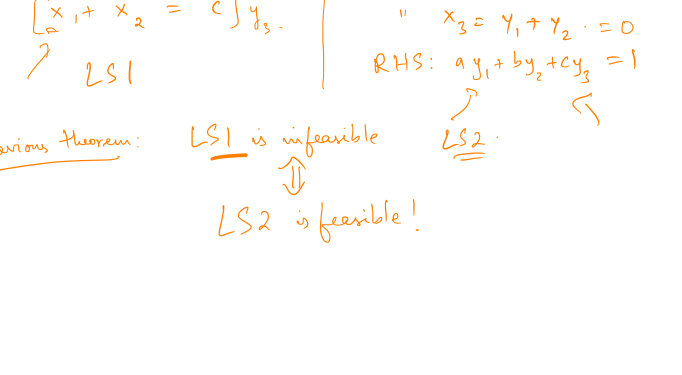 [x₁ + x₂ = c] y₃.
LS1
" x₃ = y₁ + y₂ . = 0
RHS: ay₁ + by₂ + cy₃ = 1
LS2.
evious theorem: LS1 is infeasible
⇕
LS2 is feasible!